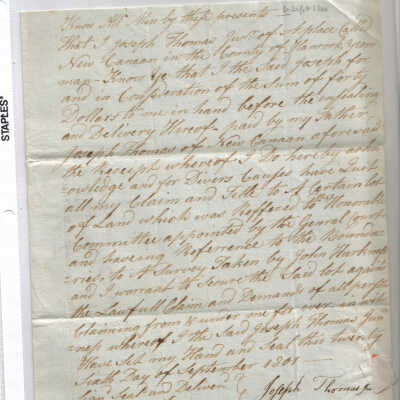 Know All Men by these presents
That I Joseph Thomas Junr. of A place Called
New Canaan in the County of Hancock yeom
man Know ye that I the Said Joseph for
and in Consideration of the Sum of forty
Dollars to me in hand before the ensealing
and Delivery Hereof paid by my Father
Joseph Thomas of New Canaan aforesaid
the Receipt whereof I Do hereby ack
nowledge and for Divers Causes have Quit
all my Claim and Title to A Certain Lot
of Land which was Reffered the Honorable
Committee appointed by the General Court
and haveing Referrence to the Bounda
ries to A Survey Taken by John Harkness
and I warrant to Secure the Said Lot against
the Lawfull Claim and Demands of all persons
Claiming from or under me for ever in wit
ness whereof I the Said Joseph Thomas Jun
Have Set my Hand and Seal this twenty
Sixth Day of September 1801
Seal and Deliverd
Joseph Thomas Jun
STAPLES